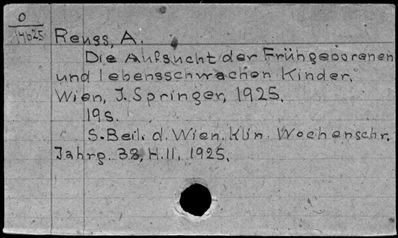 O
14025
Reuss, A.
Die Aufsucht der Frühgeborenen
und lebensschwachen Kinder.
Wien, J. Springer, 1925.
19s.
S. Beil. d. Wien. Klin. Wochenschr.
Jahrg. 38, H. 11, 1925.